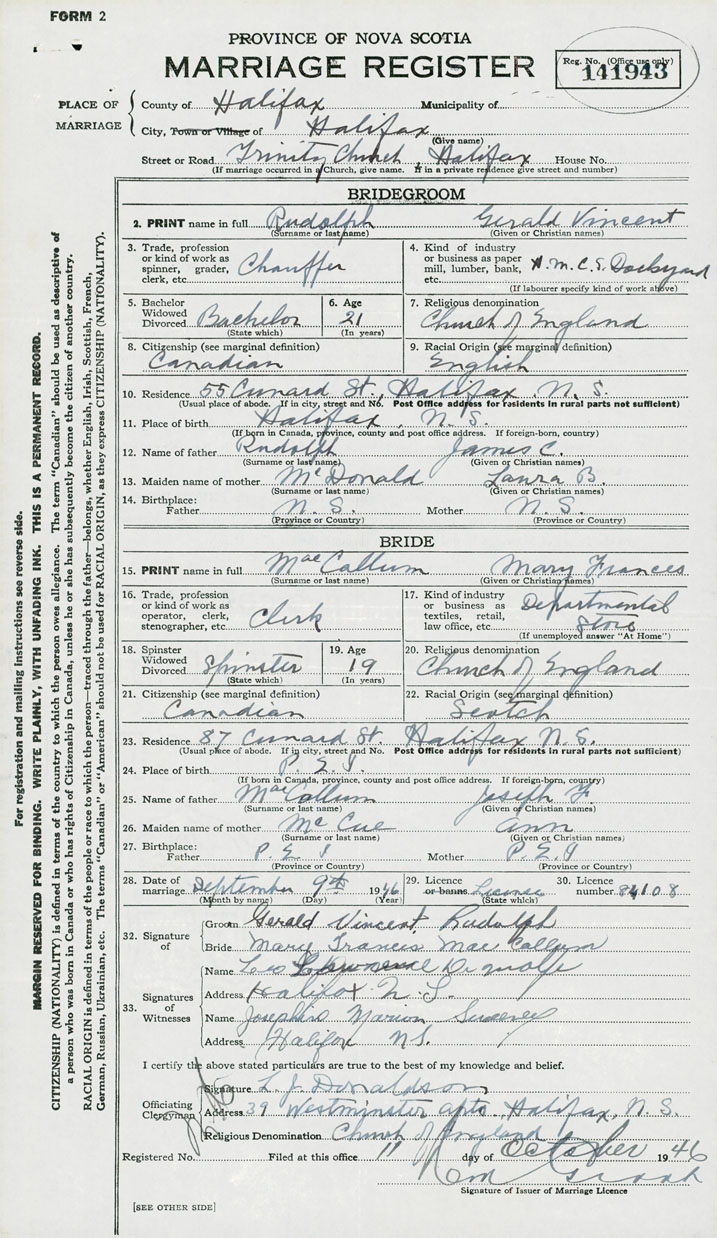 FORM 2
PROVINCE OF NOVA SCOTIA
MARRIAGE REGISTER
Reg. No. (Office use only)
141943
PLACE OF MARRIAGE
County of Halifax Municipality of
City, Town or Village of Halifax
(Give name)
Street or Road Trinity Church, Halifax House No.
(If marriage occurred in a Church, give name. If in a private residence give street and number)
BRIDEGROOM
2. PRINT name in full Rudolph Gerald Vincent
(Surname or last name) (Given or Christian names)
3. Trade, profession or kind of work as spinner, grader, clerk, etc. Chauffer
4. Kind of industry or business as paper mill, lumber, bank, etc. H.M.C.S. Dockyard
(If labourer specify kind of work above)
5. Bachelor Widowed Divorced Bachelor
(State which)
6. Age 21
(In years)
7. Religious denomination
Church of England
8. Citizenship (see marginal definition)
Canadian
9. Racial Origin (see marginal definition)
English
10. Residence 55 Cunard St., Halifax, N.S.
(Usual place of abode. If in city, street and No. Post Office address for residents in rural parts not sufficient)
11. Place of birth Halifax, N.S.
(If born in Canada, province, county and post office address. If foreign-born, country)
12. Name of father Rudolph James C.
(Surname or last name) (Given or Christian names)
13. Maiden name of mother McDonald Laura B.
(Surname or last name) (Given or Christian names)
14. Birthplace:
Father N.S. Mother N.S.
(Province or Country) (Province or Country)
BRIDE
15. PRINT name in full MacCallum Mary Frances
(Surname or last name) (Given or Christian names)
16. Trade, profession or kind of work as operator, clerk, stenographer, etc. Clerk
17. Kind of industry or business as textiles, retail, law office, etc. Departmental Store
(If unemployed answer "At Home")
18. Spinster Widowed Divorced Spinster
(State which)
19. Age 19
(In years)
20. Religious denomination
Church of England
21. Citizenship (see marginal definition)
Canadian
22. Racial Origin (see marginal definition)
Scotch
23. Residence 87 Cunard St. Halifax N.S.
(Usual place of abode. If in city, street and No. Post Office address for residents in rural parts not sufficient)
24. Place of birth P.E.I.
(If born in Canada, province, county and post office address. If foreign-born, country)
25. Name of father MacCallum Joseph F.
(Surname or last name) (Given or Christian names)
26. Maiden name of mother McCue Ann
(Surname or last name) (Given or Christian names)
27. Birthplace:
Father P.E.I Mother P.E.I
(Province or Country) (Province or Country)
28. Date of marriage September 9th 1946
(Month by name) (Day) (Year)
29. Licence or banns License
(State which)
30. Licence number 84108
32. Signature of
Groom Gerald Vincent Rudolph
Bride Mary Frances MacCallum
33. Signatures of Witnesses
Name Demolfe
Address Halifax N.S.
Name Josephine Marion Sweeney
Address Halifax NS.
I certify the above stated particulars are true to the best of my knowledge and belief.
Officiating Clergyman
Signature L. J. Donaldson
Address 39 Westminster apts, Halifax, N.S.
Religious Denomination Church of England
Registered No. Filed at this office 11 day of October 1946
Signature of Issuer of Marriage Licence
[SEE OTHER SIDE]
For registration and mailing instructions see reverse side.
MARGIN RESERVED FOR BINDING. WRITE PLAINLY, WITH UNFADING INK. THIS IS A PERMANENT RECORD.
CITIZENSHIP (NATIONALITY) is defined in terms of the country to which the person owes allegiance. The term "Canadian" should be used as descriptive of
a person who was born in Canada or who has rights of Citizenship in Canada, unless he or she has subsequently become the citizen of another country.
RACIAL ORIGIN is defined in terms of the people or race to which the person—traced through the father—belongs, whether English, Irish, Scottish, French,
German, Russian, Ukrainian, etc. The terms "Canadian" or "American" should not be used for RACIAL ORIGIN, as they express CITIZENSHIP (NATIONALITY).